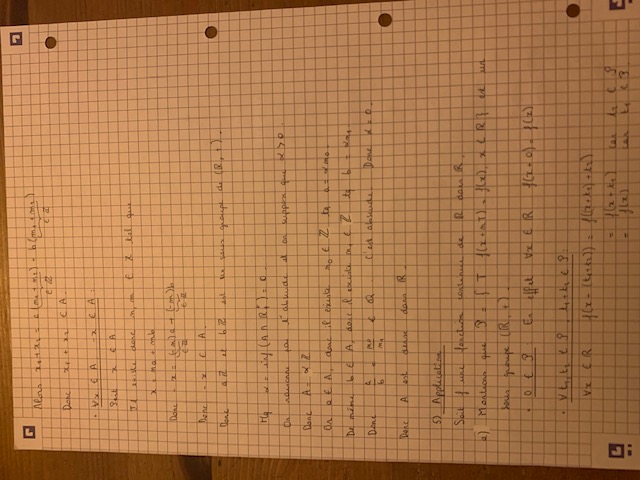 Alors x₁+x₂ = a(m₁+m₂) + b(m₁+m₂)
∈ ℤ ∈ ℤ
Donc x₁ + x₂ ∈ A.
• ∀x ∈ A, -x ∈ A :
Soit x ∈ A
Il existe donc n, m ∈ ℤ tel que
x = na + mb
Donc -x = (-n)a + (-m)b
∈ ℤ ∈ ℤ
Donc -x ∈ A.
Donc aℤ et bℤ est un sous groupe de (ℝ, +).
Mq α = inf(A ∩ ℝ₊*) = 0.
On raisonne par l'absurde et on suppose que α > 0.
Donc A = αℤ
Or a ∈ A, donc il existe m₀ ∈ ℤ tq a = αm₀.
De même b ∈ A, donc il existe m₁ ∈ ℤ tq b = αm₁
Donc a/b = m₀/m₁ ∈ ℚ. C'est absurde. Donc α = 0.
Donc A est dense dans ℝ.
5) Application
Soit f une fonction continue de ℝ dans ℝ.
a) Montrons que P = { T f(x+T) = f(x), x ∈ ℝ} est un
sous groupe (ℝ, +).
• 0 ∈ P : En effet ∀x ∈ ℝ f(x+0) = f(x)
• ∀t₁, t₂ ∈ P, t₁+t₂ ∈ P :
∀x ∈ ℝ f(x+(t₁+t₂)) = f((x+t₁)+t₂)
= f(x+t₁) car t₂ ∈ P
= f(x) car t₁ ∈ P